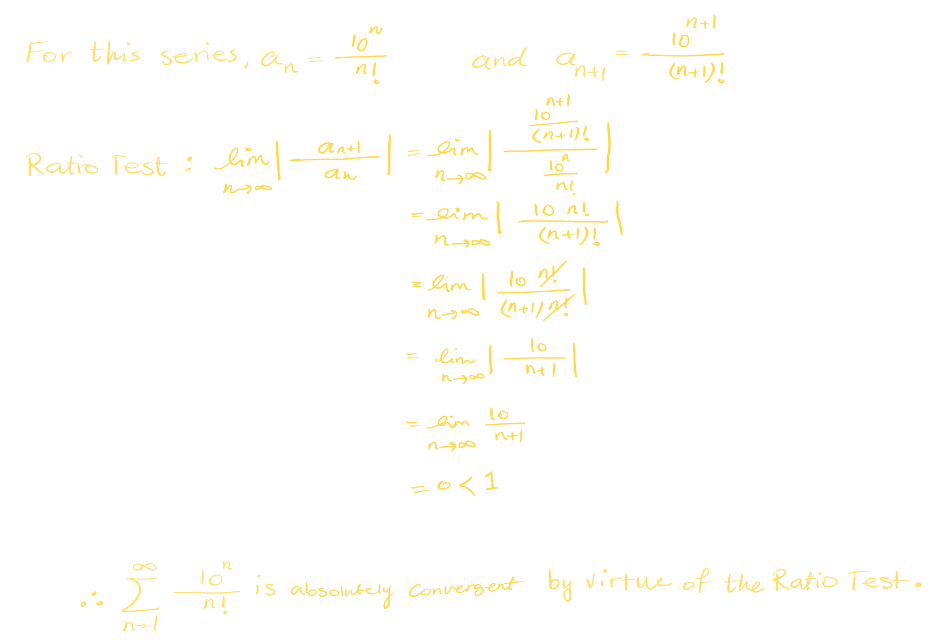 For this series, aₙ = 10ⁿ/n! and aₙ₊₁ = 10ⁿ⁺¹/(n+1)!
Ratio Test : lim n→∞ | aₙ₊₁/aₙ | = lim n→∞ | (10ⁿ⁺¹/(n+1)!)/(10ⁿ/n!) |
= lim n→∞ | 10 n!/(n+1)! |
= lim n→∞ | 10 n!/(n+1) n! |
= lim n→∞ | 10/n+1 |
= lim n→∞ 10/n+1
= 0 < 1
∴ ∑ n=1 ∞ 10ⁿ/n! is absolutely convergent by virtue of the Ratio Test.